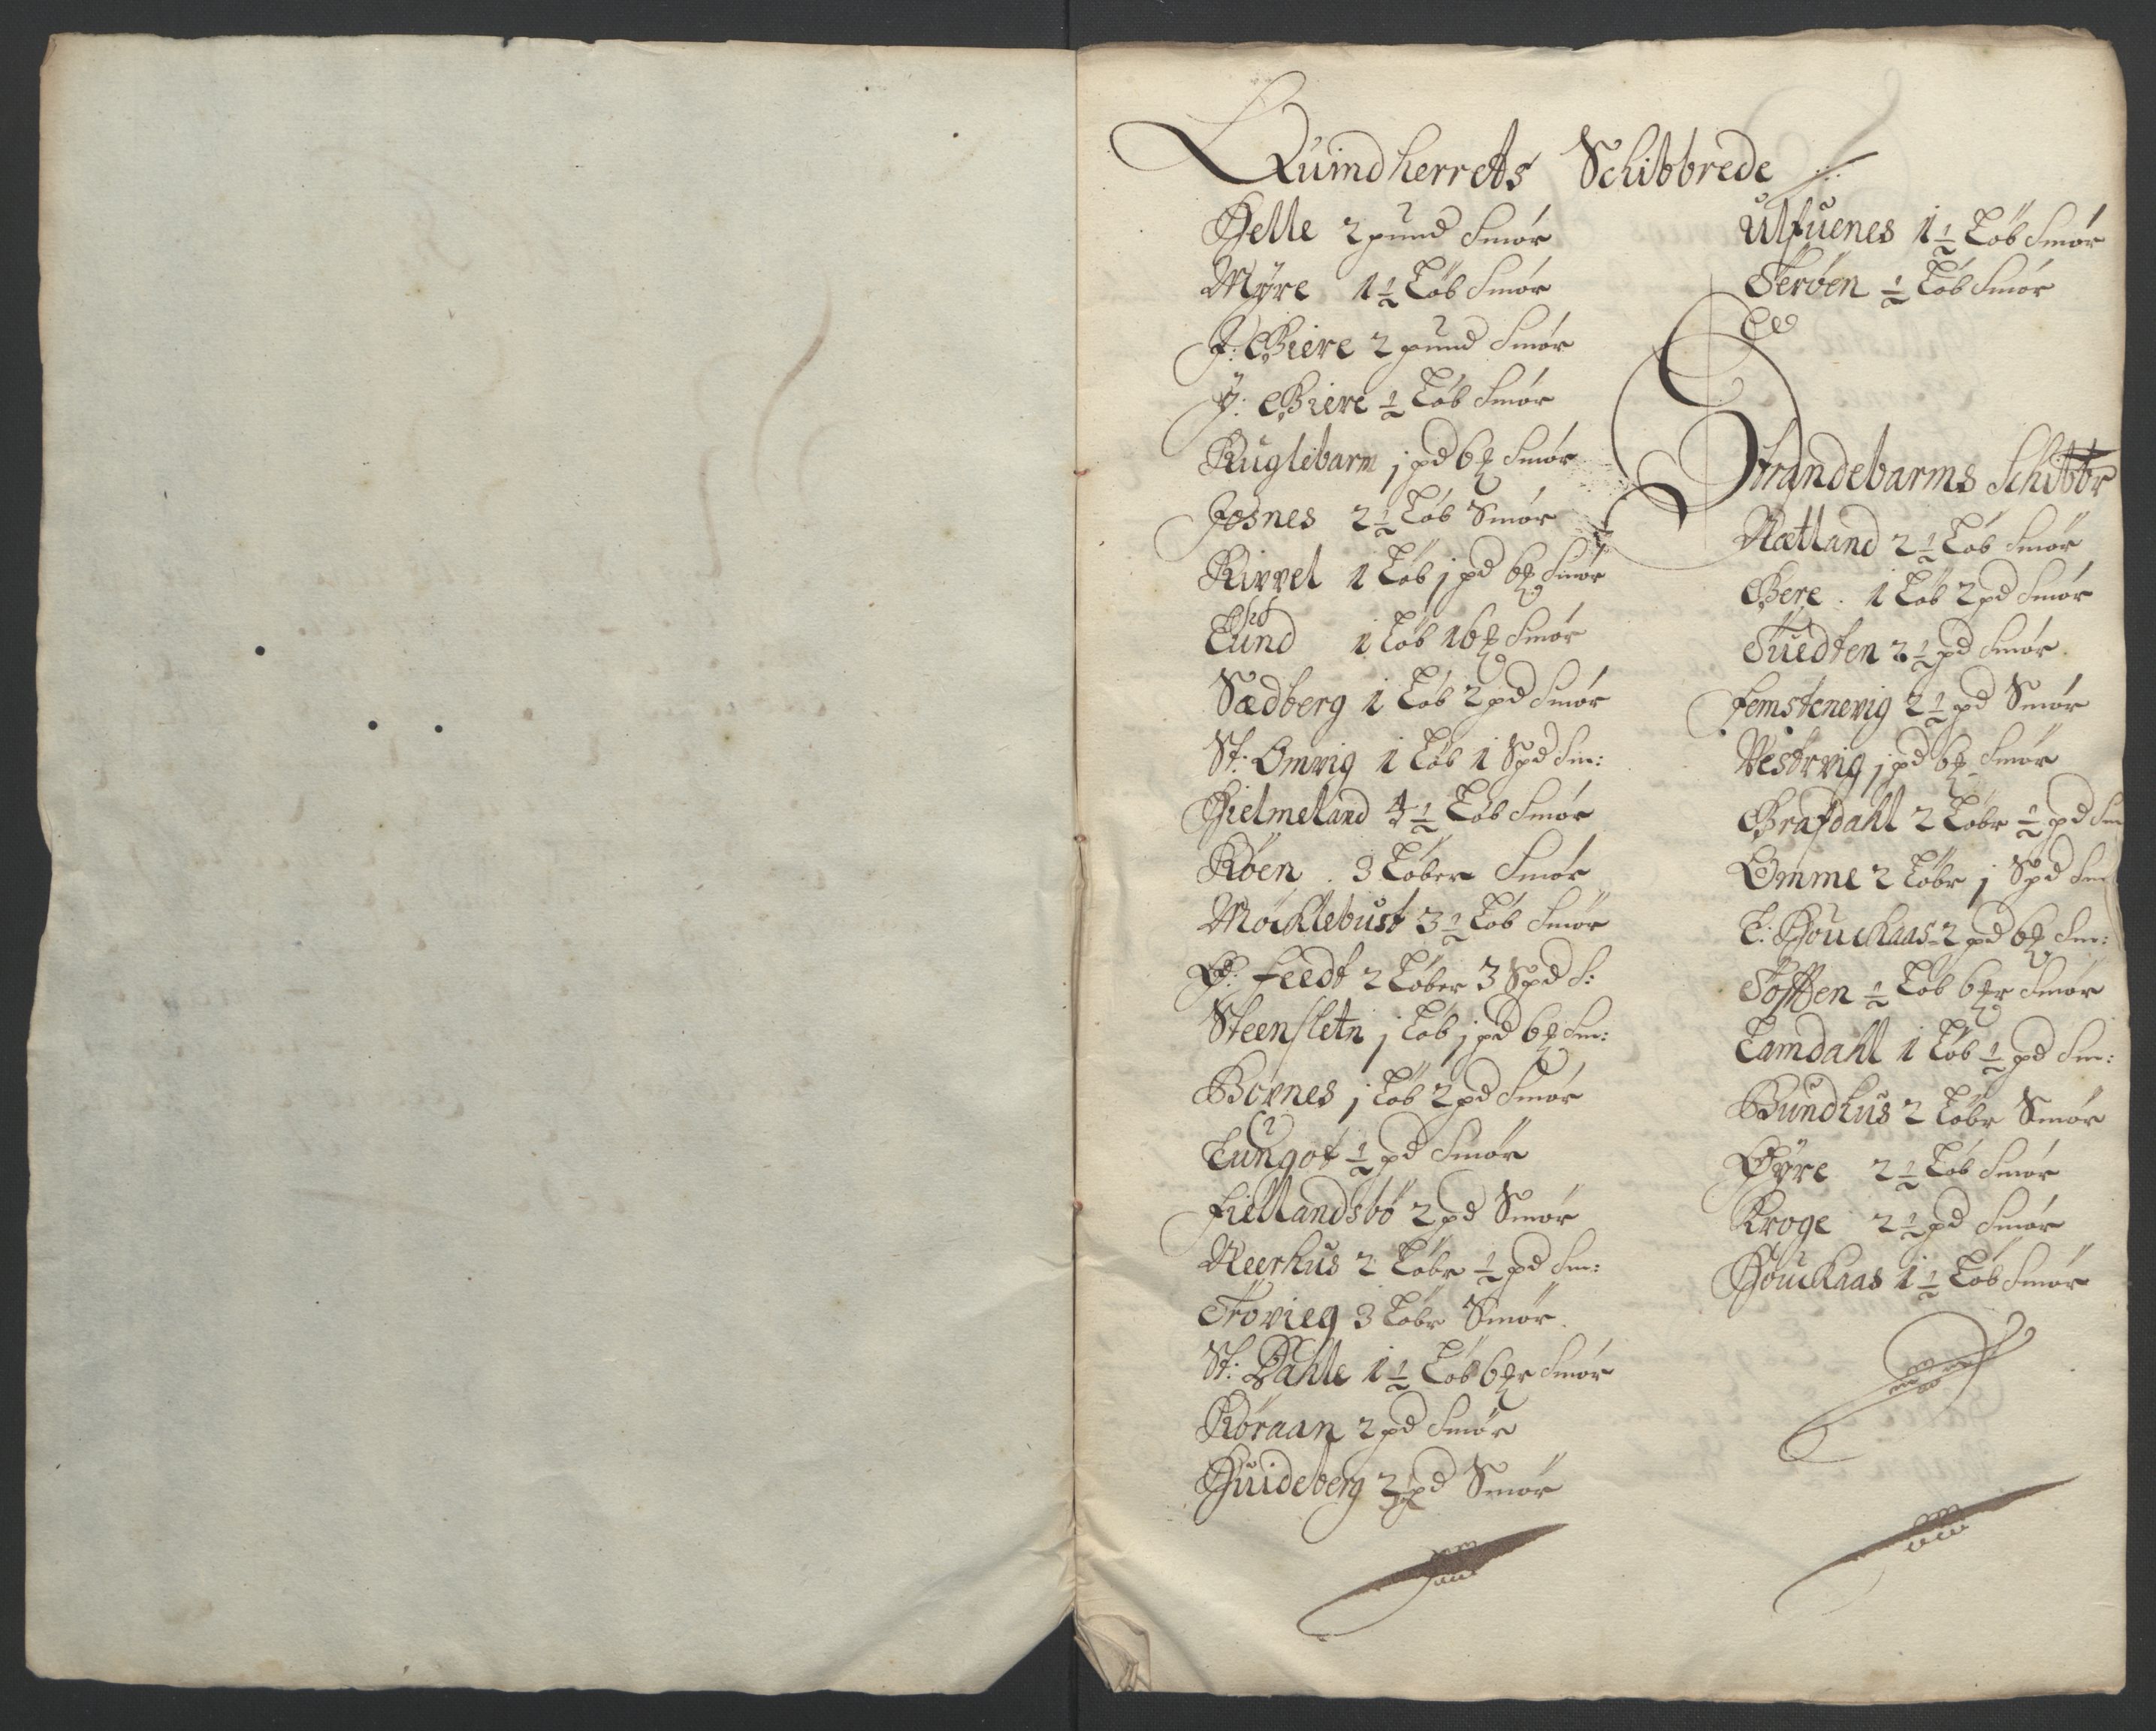 Quindherrets Schibbrede
Helle 2 pund Smör
Myre 1½ Löb Smör
J: Giere 2 pund Smör
Y: Giere ½ Löb Smör
Kuglebarm j pd 6 ℔ Smör
Josnes 2½ Löb Smör
Kirvel 1 Löb j pd 6 ℔ Smör
Lund 1 Löb 16 ℔ Smör
Sædberg 1 Löb 2 pd Smör
St: Omvig 1 Löb 1 Spd Sm:
Hielmeland 4½ Löb Smör
Röen . 3 Löber Smör
Möcklebust 3½ Löb Smör
Ø: Feedt 2 Löber 3 Spd S:
Steensletn j Löb j pd 6 ℔ Sm:
Bornes j Löb 2 pd Smör
Lungot ½ pd Smör
Fiellandsbö 2 pd Smör
Neerhus 2 Löbr ½ pd Sm:
Trovieg 3 Löbr Smör.
St: Dahle 1½ Löb 6 ℔r Smör
Köraan 2 pd Smör
Huideberg 2 pd Smör
Ulfuenes 1½ Löb Smör
Teröen ½ Löb Smör
Strandebarms Schibbr
Nætland 2½ Löb Smör
Gere . 1 Löb 2 pd Smör
Tuedten 2½ pd Smör.
Femstenevig 2½ pd Smör
Vestrvig j pd 6 ℔ Smör
Brafdahl 2 Löbr ½ pd Sm
Omme 2 Löbr j Spd Sm
L: Houckaas 2 pd 6 ℔ Sm:
Töfften ½ Löb 6 ℔r Smör
Lamdahl 1 Löb ½ pd Sm:
Bundhus 2 Löbr Smör
Öyre 2½ Löb Smör
Kroge 2½ pd Smör
Houckaas 1½ Löb Smör